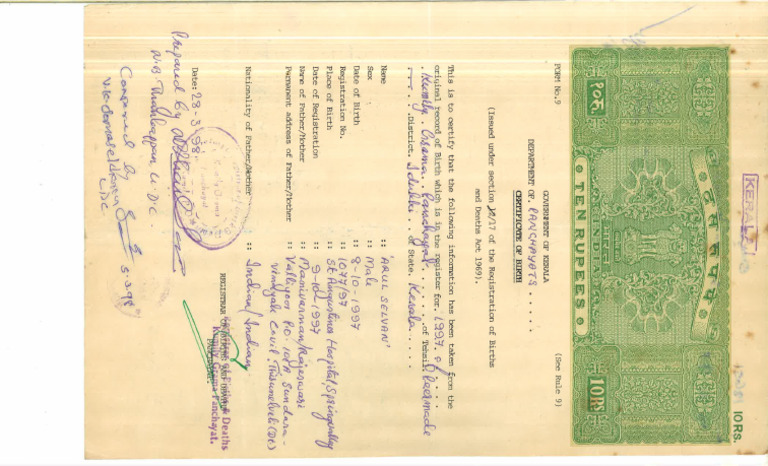 KERALA
10 RS.
दस रुपये
१०रु.
भारत
INDIA
10 RS
TEN RUPEES
FORM No.9
(See Rule 9)
GOVERNMENT OF KERALA
DEPARTMENT OF. PANCHAYATS . . . . .
CERTIFICATE OF BIRTH
(Issued under section 12/17 of the Registration of Births
and Deaths Act 1969).
This is to certify that the following information has been taken from the
original record of Birth which is in the register for. 1997. of
. Kumily . Grama . Panchayat. . . . . . of Tehsil. Peermade
. . . . . District. Idukki . . of State. Kerala . . . . .
Name :: 'ARUL SELVAN'
Sex :: Male
Date of Birth :: 8-10-1997
Registration No. :: 1077/97
Place of Birth :: St. Augustines Hospital, Spring Valley
Date of Registration :: 9-10-1997
Name of Father/Mother :: Manivarnan/Rajeswari
Permanent address of Father/Mother :: Valliyoor P.O. Sundara-
Civil. Tirunelveli (Dt)
Nationality of Father/Mother :: Indian/Indian
Date: 23.3.98
REGISTRAR OF BIRTHS & Deaths
Kumily Grama Panchayat.
Prepared by
U.DC.
Compared by
L.DC
5.3.98